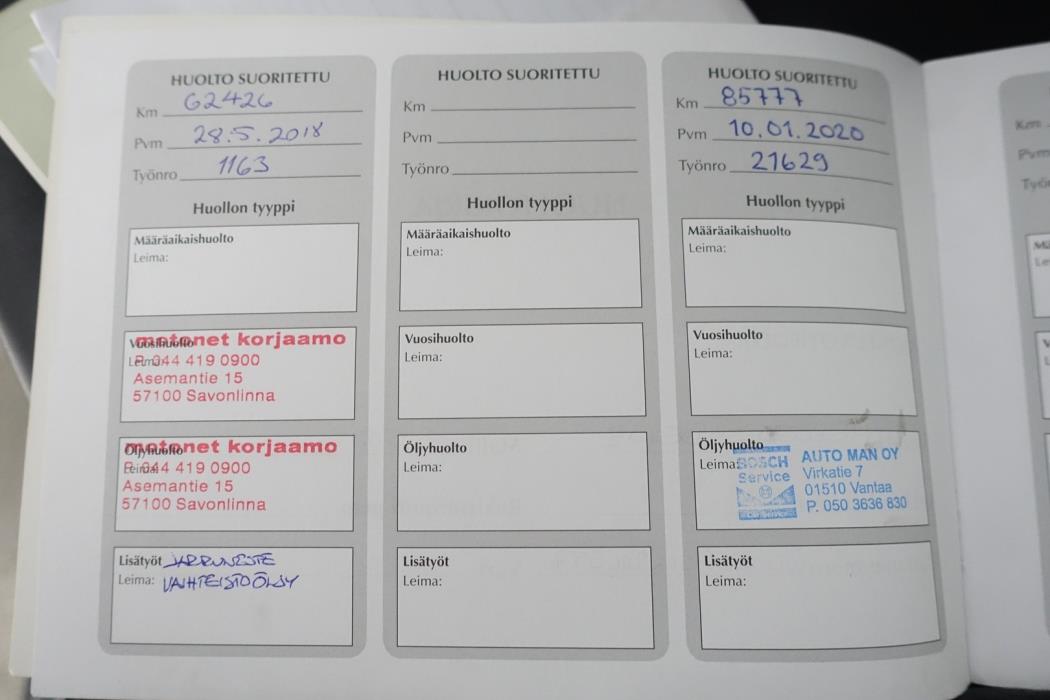 HUOLTO SUORITETTU
Km 62426
Pvm 28.5.2018
Työnro 1163
Huollon tyyppi
Määräaikaishuolto
Leima:
Vuosihuolto
motonet korjaamo
Leima:
P. 044 419 0900
Asemantie 15
57100 Savonlinna
Öljyhuolto
motonet korjaamo
Leima:
P. 044 419 0900
Asemantie 15
57100 Savonlinna
Lisätyöt JARRUNESTE
Leima: VAIHTEISTOÖLJY
HUOLTO SUORITETTU
Km
Pvm
Työnro
Huollon tyyppi
Määräaikaishuolto
Leima:
Vuosihuolto
Leima:
Öljyhuolto
Leima:
Lisätyöt
Leima:
HUOLTO SUORITETTU
Km 85777
Pvm 10.01.2020
Työnro 21629
Huollon tyyppi
Määräaikaishuolto
Leima:
Vuosihuolto
Leima:
Öljyhuolto
Leima:
BOSCH
Service
AUTO MAN OY
Virkatie 7
01510 Vantaa
P. 050 3636 830
Lisätyöt
Leima:
Km
Pvm